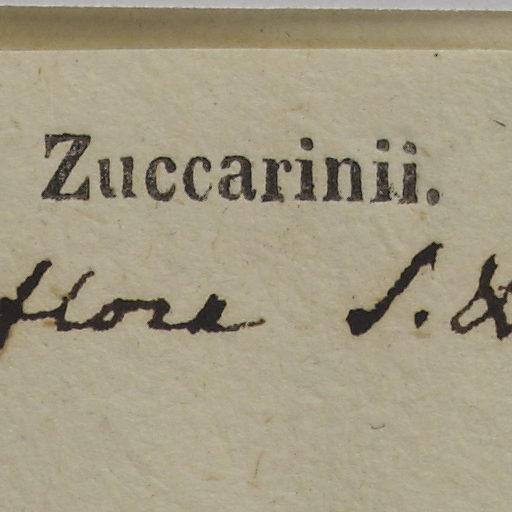 Zuccarinii.
flora S. &